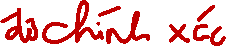 độ chính xác